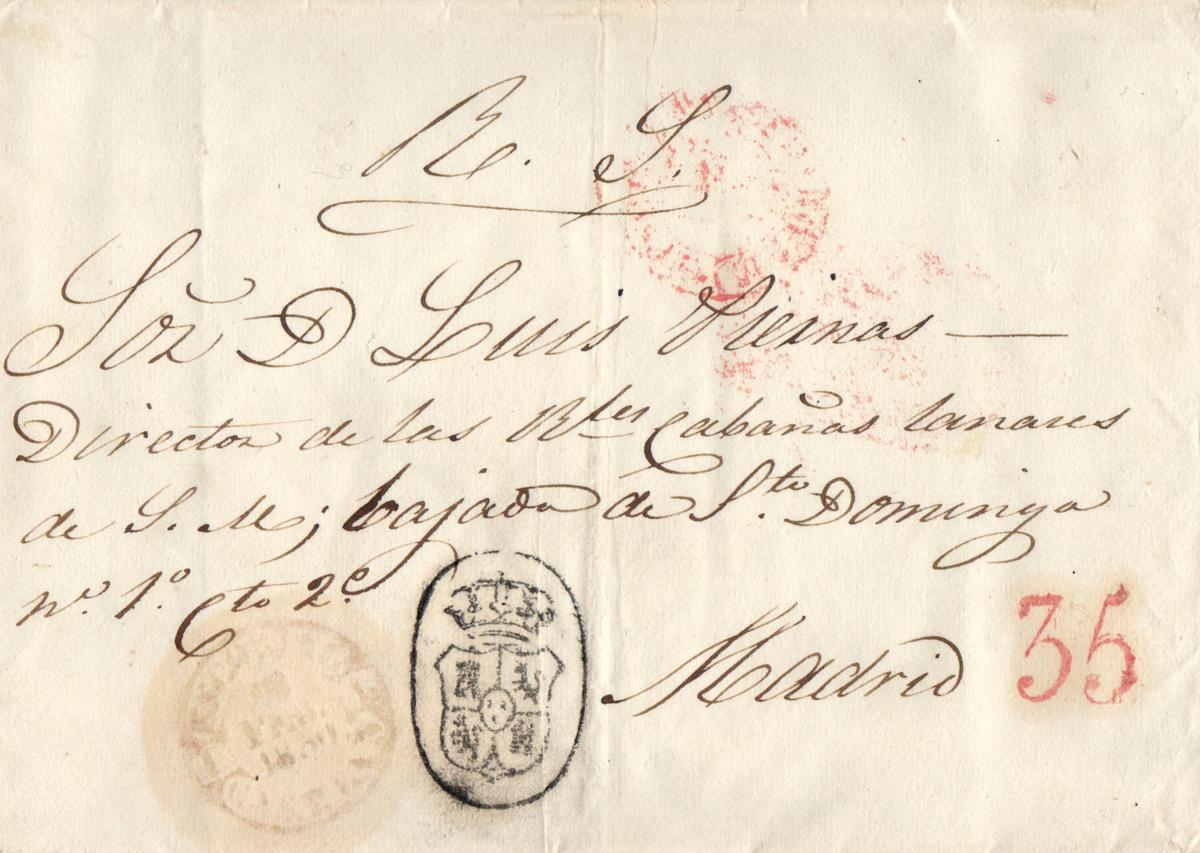 R. S.
Sor. D Luis Reinas
Director de las Rles Cabañas lanares
de S. M; bajada de Sto. Domingo
no. 1o. Cto 2o.
Madrid
35